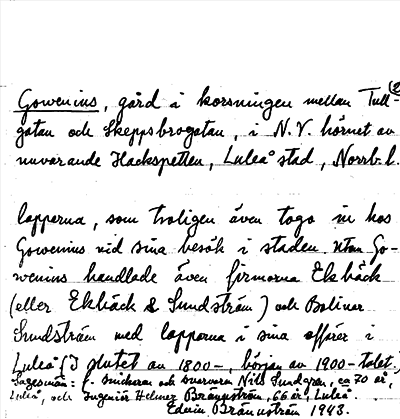 (2
Gowenius, gård i korsningen mellan Tull-
gatan och Skeppsbrogatan, i N.V. hörnet av
nuvarande Hackspetten, Luleå stad, Norrb. l.
lapparna, som troligen även togo in hos
Gowenius vid sina besök i staden utan Go-
wenius handlade även firmorna Ekbäck
(eller Ekbäck & Sundström) och Boliner
Sundström med lapparna i sina affärer i
Luleå (I slutet av 1800-, början av 1900-talet.)
Sagesmän: f. snickaren och svarvaren Nils Lundgren, ca 70 år,
Luleå, och Ingeniör Helmer Brännström, 66 år, Luleå.
Edvin Brännström 1943.